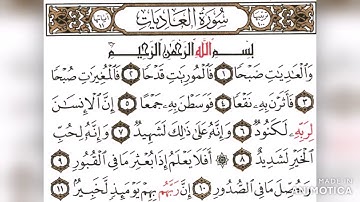 سُورَةُ العَادِيَاتِ
بِسْمِ اللَّهِ الرَّحْمَٰنِ الرَّحِيمِ
وَالْعَٰدِيَٰتِ ضَبْحًا ١ فَالْمُورِيَٰتِ قَدْحًا ٢ فَالْمُغِيرَٰتِ صُبْحًا
٣ فَأَثَرْنَ بِهِۦ نَقْعًا ٤ فَوَسَطْنَ بِهِۦ جَمْعًا ٥ إِنَّ الْإِنسَٰنَ
لِرَبِّهِۦ لَكَنُودٌ ٦ وَإِنَّهُۥ عَلَىٰ ذَٰلِكَ لَشَهِيدٌ ٧ وَإِنَّهُۥ لِحُبِّ
الْخَيْرِ لَشَدِيدٌ ٨ أَفَلَا يَعْلَمُ إِذَا بُعْثِرَ مَا فِي الْقُبُورِ ٩
وَحُصِّلَ مَا فِي الصُّدُورِ ١٠ إِنَّ رَبَّهُم بِهِمْ يَوْمَئِذٍ لَّخَبِيرٌ ١١
MADE IN
ANIMOTICA